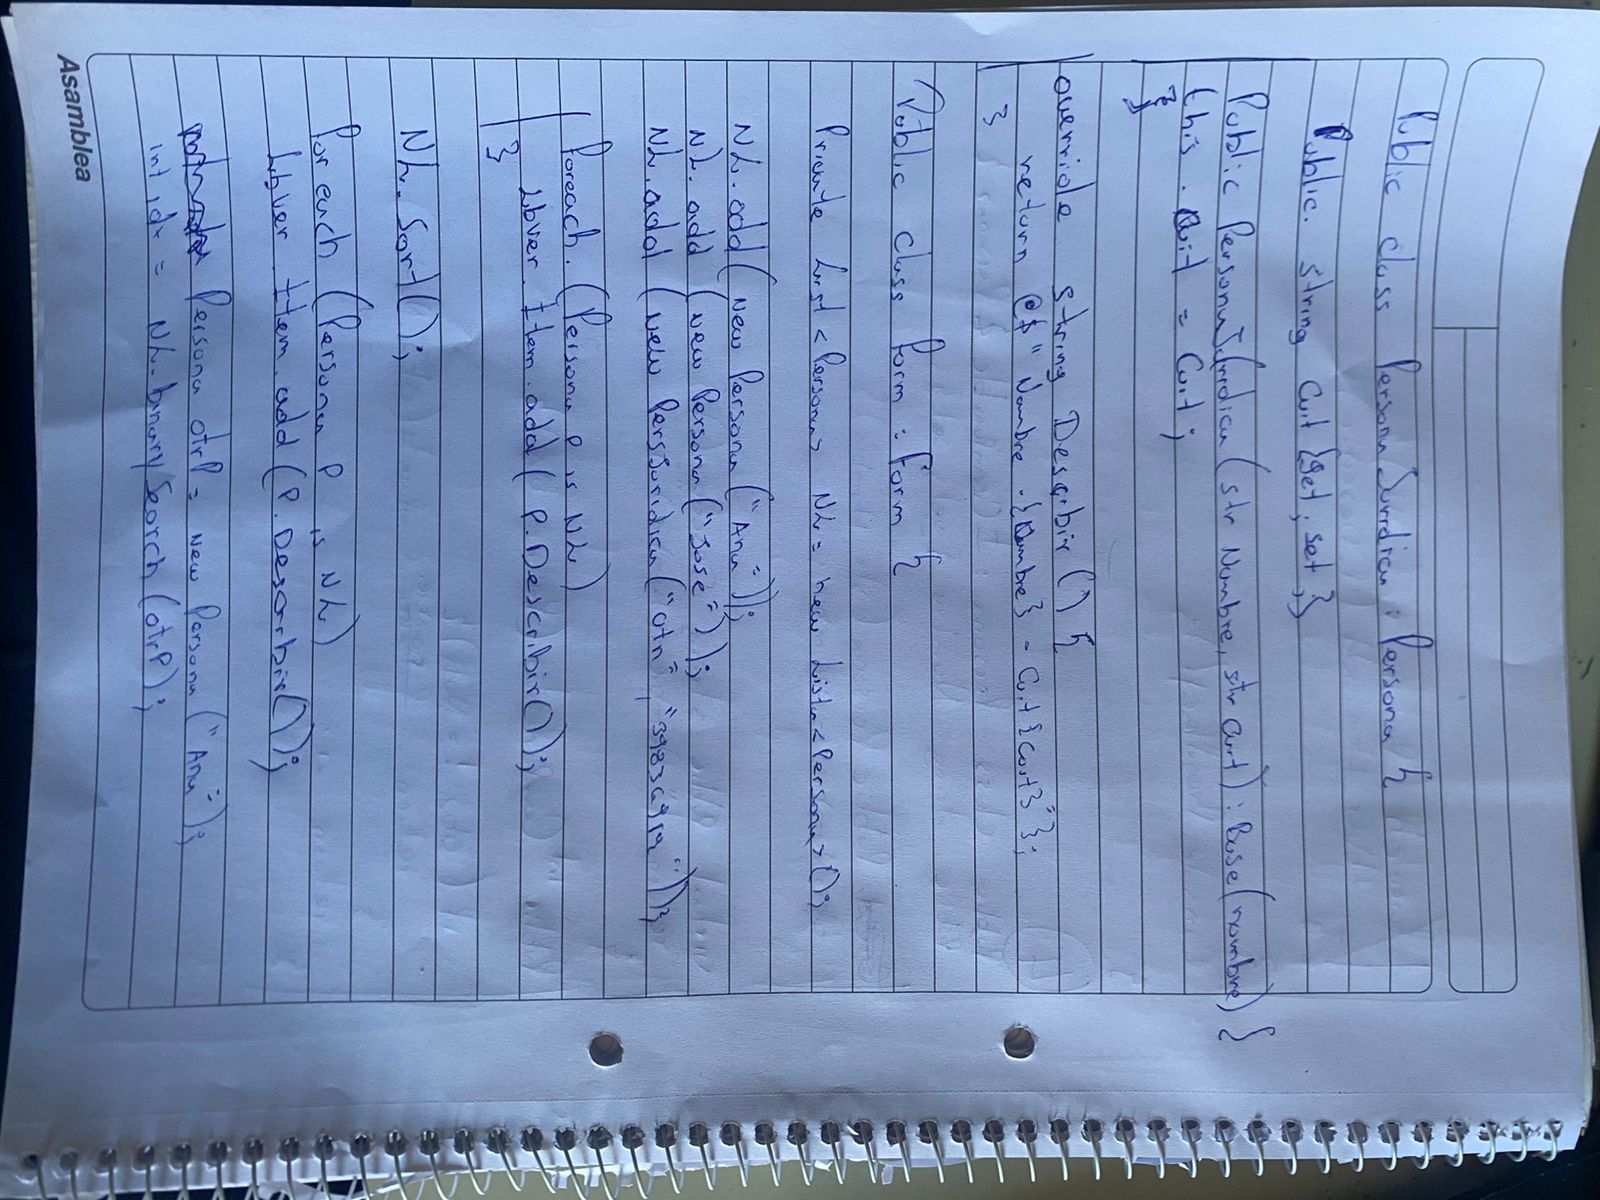 Public class PersonaJuridica : Persona {
Public. string Cuit {get; set;}
Public PersonaJuridica (str Nombre, str cuit) : Base(nombre) {
this. Cuit = Cuit;
}
override string Describir () {
return @$" Nombre .{Nombre} - Cuit {Cuit}"};
}
Public class Form : Form {
Private List <Persona> NL = new Lista <Persona> ();
NL. add( new Persona ("Ana"));
NL. add (new Persona ("Jose"));
NL. add (new PersJuridica ("otra",
foreach. (Persona P is NL)
Libver. Item. add( P. Describir());
}
NL. Sort();
for each (Persona P is NL)
Libver. Item. add (P. Describir());
Persona otrP = new Persona ("Ana");
int idx = NL. binary Search (otrP);
Asamblea